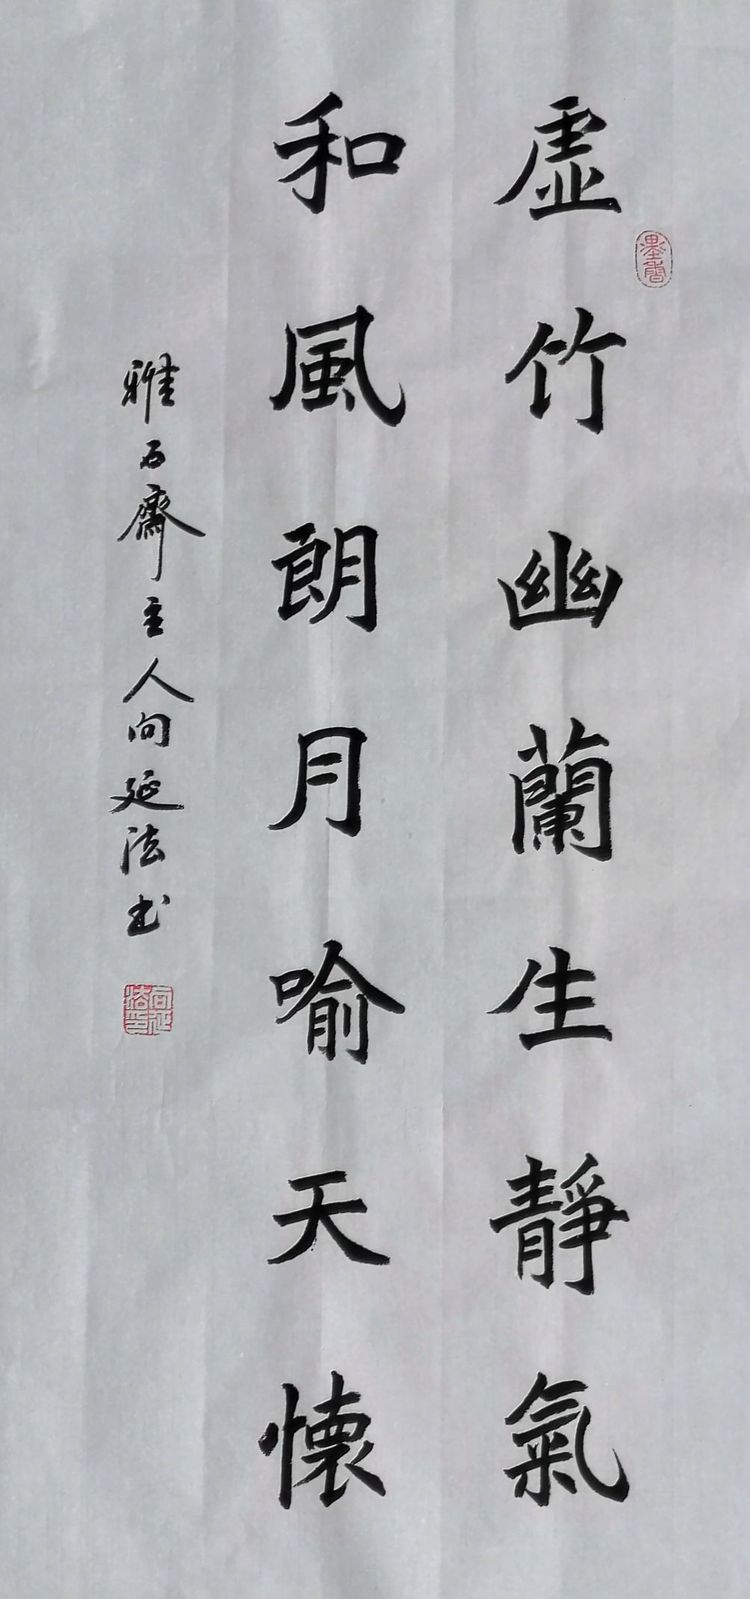 虛竹幽蘭生靜氣
墨香
和風朗月喻天懷
雅石齋主人向延法书
向延法印